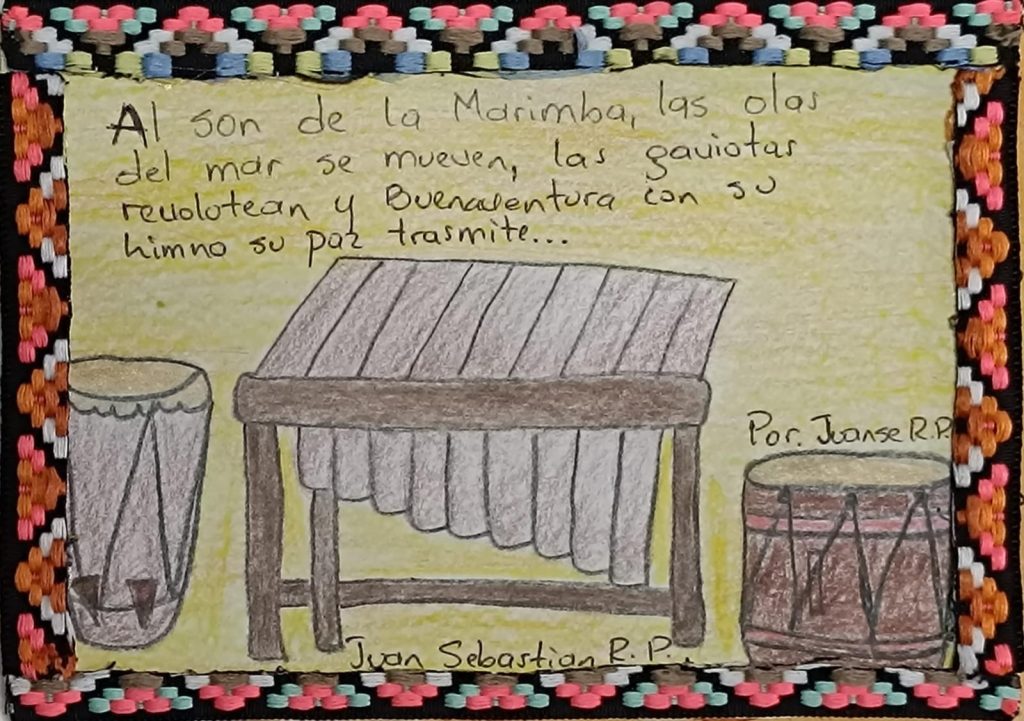 Al son de la Marimba, las olas
del mar se mueven, las gaviotas
revolotean y Buenaventura con su
himno su paz trasmite...
Por. Juanse R.P.
Juan Sebastian R. P..